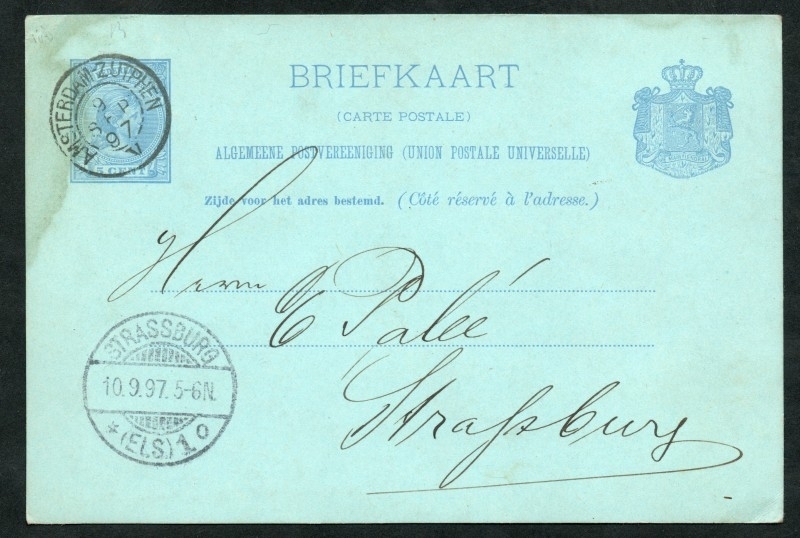 AMSTERDAM-ZUTPHEN
9 SEP 97
5 CENT
BRIEFKAART
(CARTE POSTALE)
ALGEMEENE POSTVEREENIGING (UNION POSTALE UNIVERSELLE)
Zijde voor het adres bestemd. (Côté réservé à l'adresse.)
Herrn
E Palée
Straßburg
STRASSBURG
10.9.97. 5-6N.
* (ELS.) 1 o